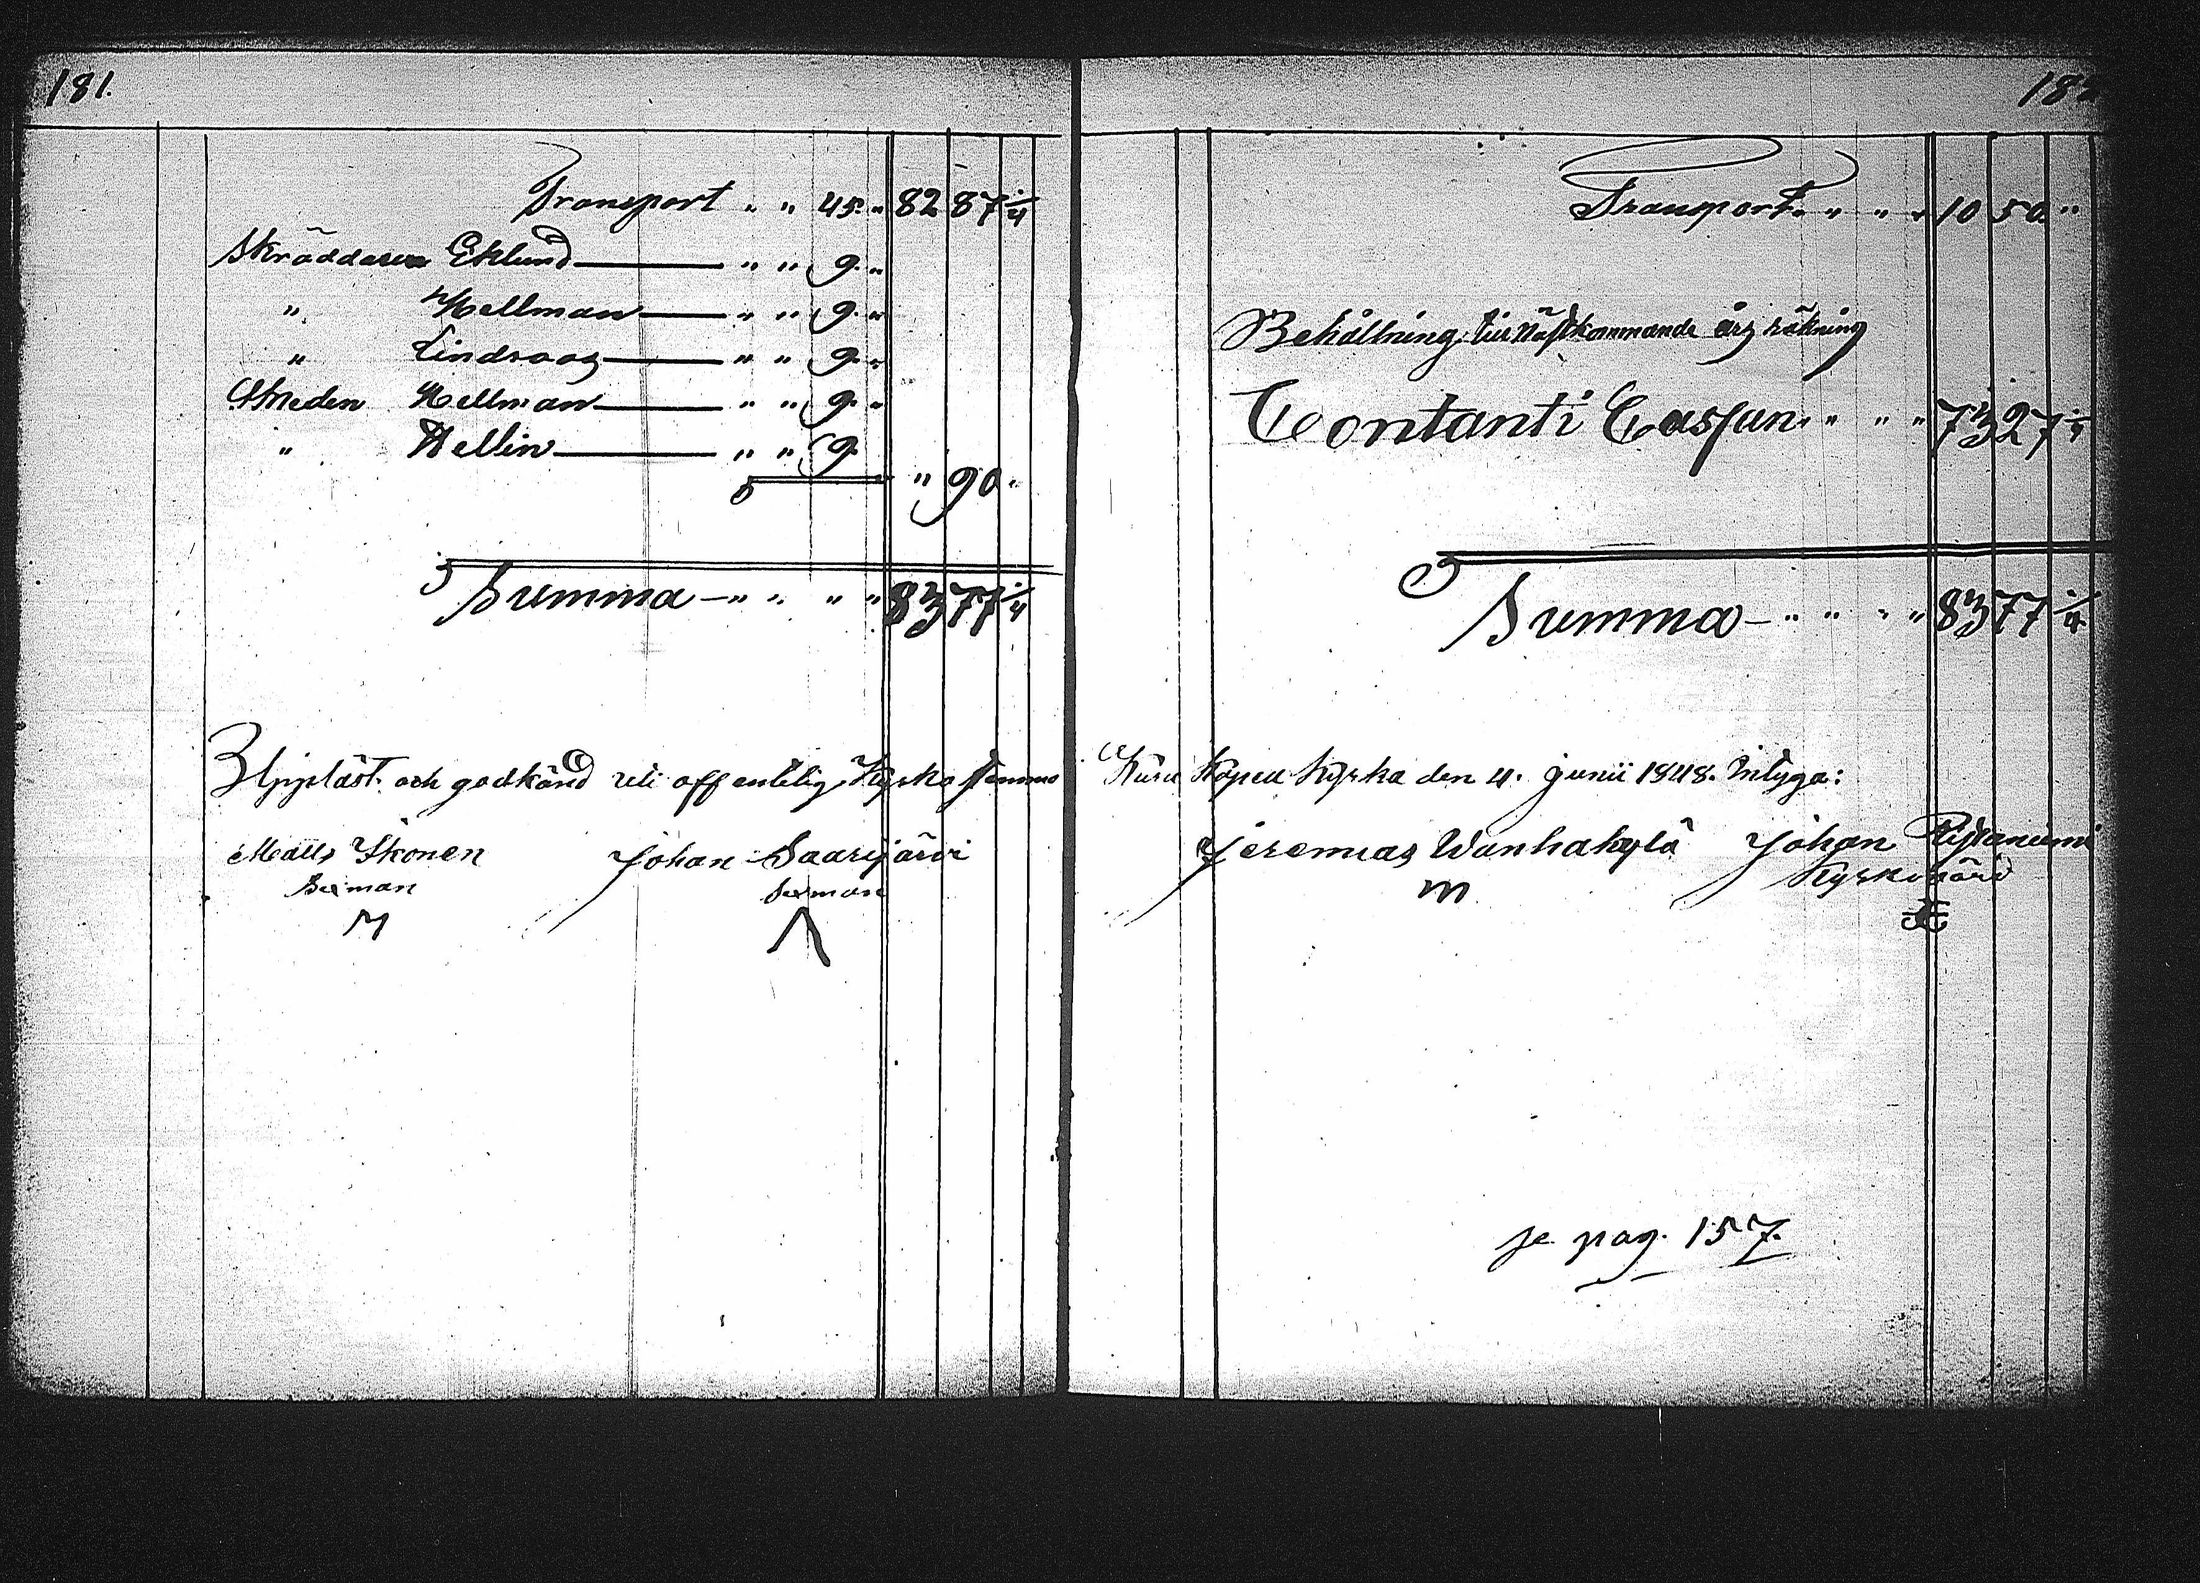 181.
Transport " " 45. " 82 87 1/4
Skräddaren Eklund " " 9. "
" Hellman " " 9. "
" Lindroos " " 9. "
Smeden Hellman " " 9. "
" Hellin " " 9.
" 90. "
Summa " " " " 83 77 1/4
Uppläst och godkänd uti offentelig Kyrkostemma
Matts Ikonen Johan Saarijärvi
Sexman Sexman
182
Transport " " " " 10 50 "
Behållning till nästkommande års räkning
Contanti Cassan " " " " 73 27 1/4
Summa " " " " 83 77 1/4
i Kuru Kapell Kyrka den 4. Junii 1848. Intyga:
Jeremias Wanhakylä Johan
m Kyrkovärd
se pag. 157.